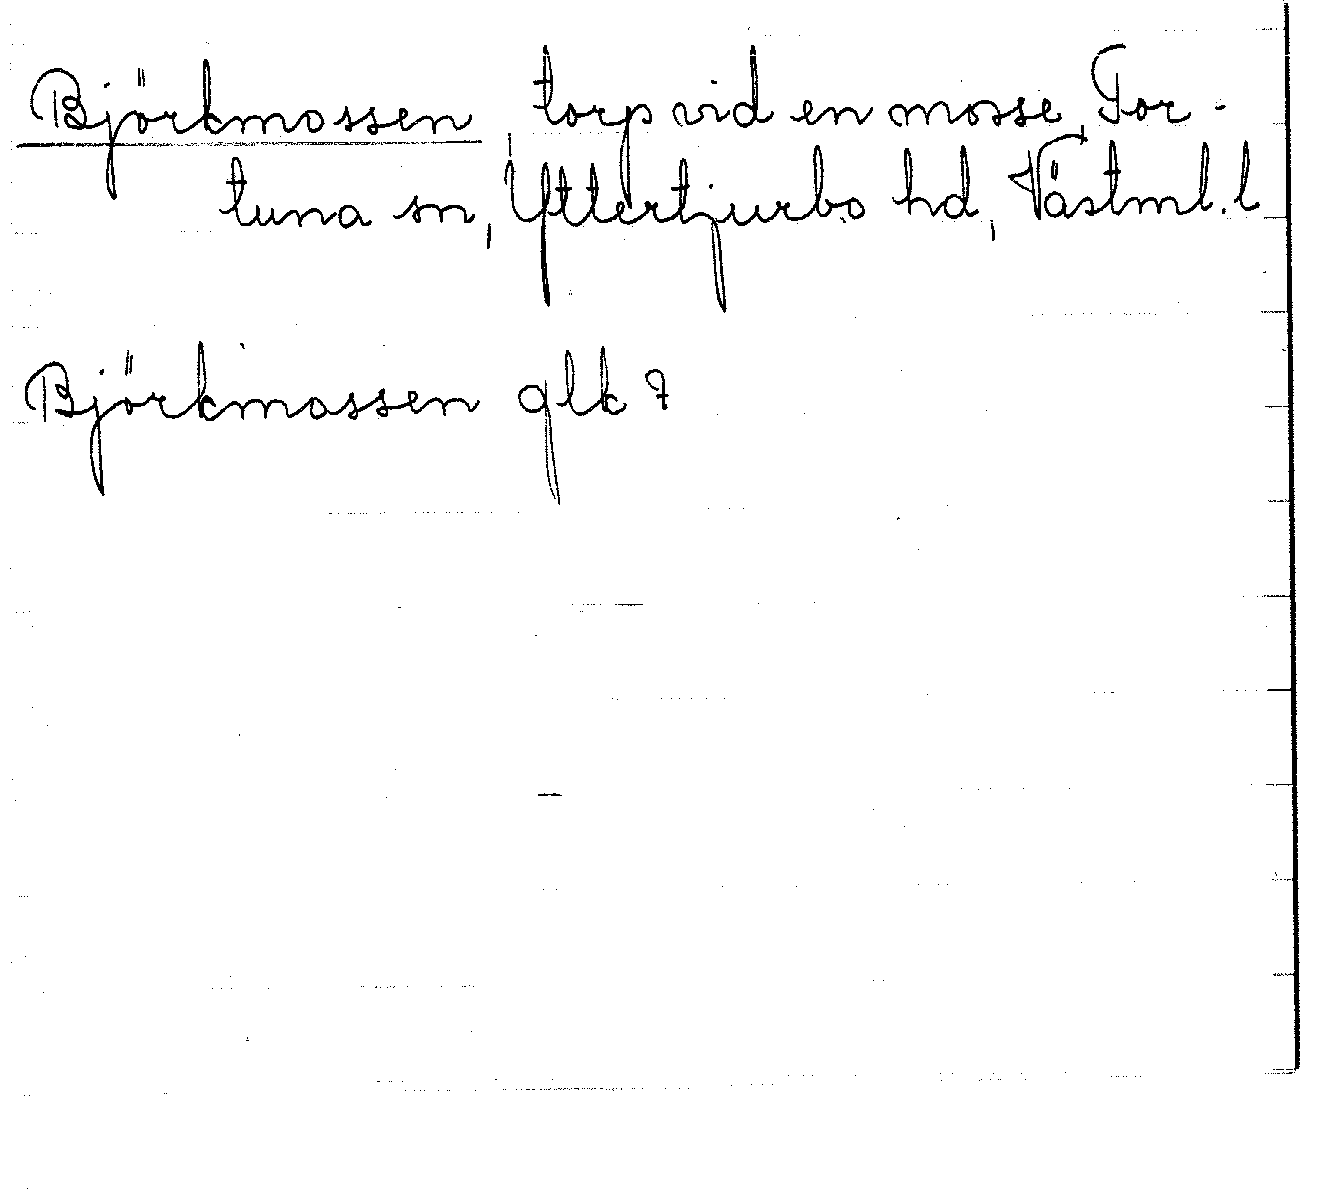 Björkmossen, torp vid en mosse, Tor-
tuna sn, Yttertjurbo hd, Västml. l
Björkmossen glk 7